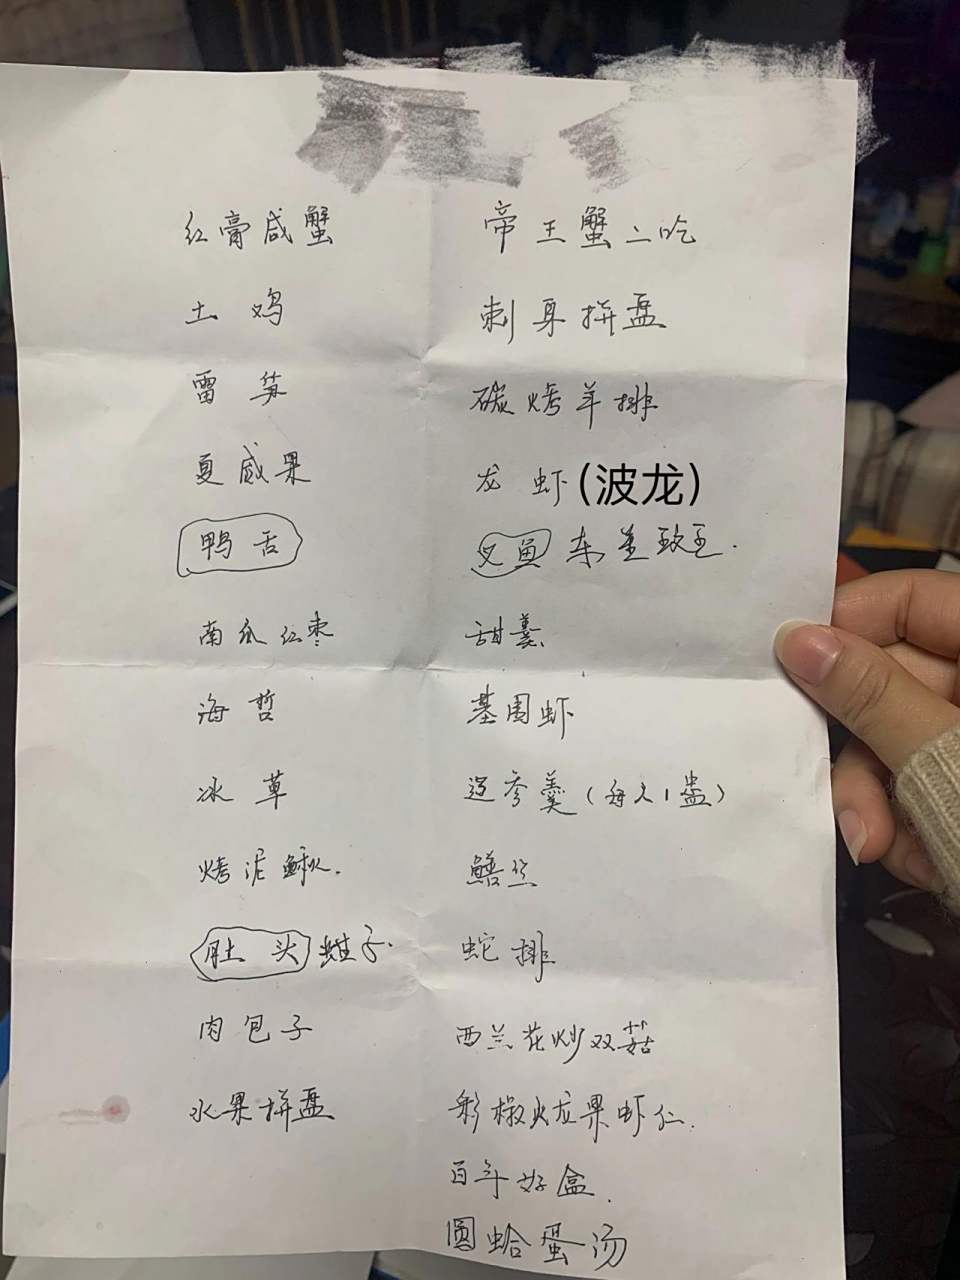 红膏咸蟹
土鸡
雷笋
夏威果
鸭舌
南瓜红枣
海哲
冰草
烤泥鳅.
肚头 蛏子.
肉包子
水果拼盘
帝王蟹二吃
刺身拼盘
碳烤羊排
龙虾(波龙)
叉鱼 东星
甜羹.
基围虾
辽参羹(每人1盅)
鳝丝
蛇排
西兰花炒双菇
彩椒火龙果虾仁.
百年好盒.
圆蛤蛋汤